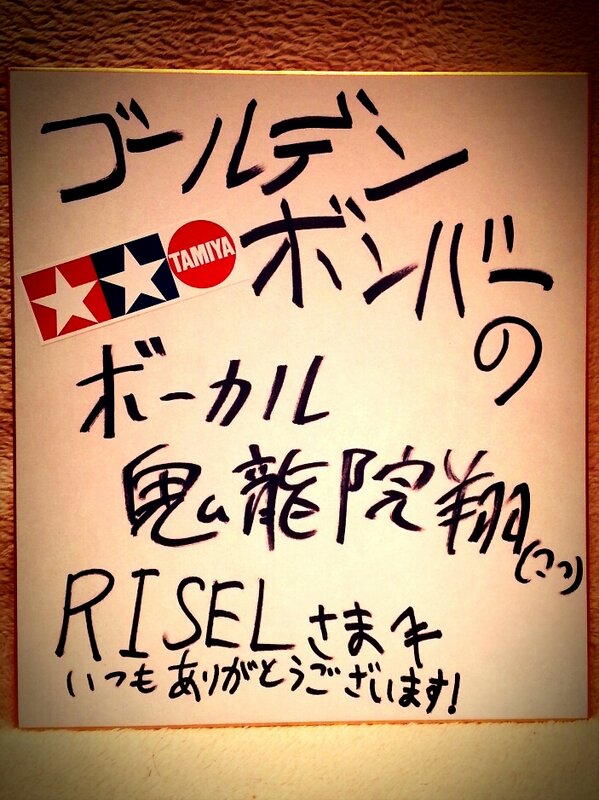 ゴールデン
TAMIYA
ボンバーの
ボーカル
鬼龍院翔
RISELさま
いつもありがとうございます!